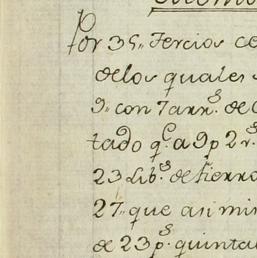 Por 35,, Tercios
delos quales
9,, con 7 arr.s de
tado q.e a 9 p 2 r.s
23 Lib.s de fierro
27,, que asi mi
de 23 p.s quinta